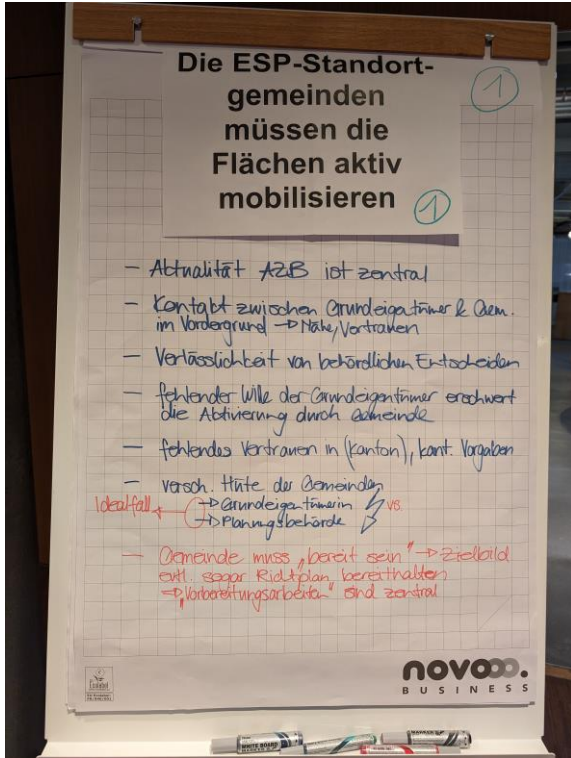 Die ESP-Standort-
gemeinden
müssen die
Flächen aktiv
mobilisieren
1
1
– Aktualität AZB ist zentral
– Kontakt zwischen Grundeigentümer & Gem.
im Vordergrund → Nähe, Vertrauen
– Verlässlichkeit von behördlichen Entscheiden
– fehlender Wille der Grundeigentümer erschwert
die Aktivierung durch Gemeinde
– fehlendes Vertrauen in (Kanton), kant. Vorgaben
– versch. Hüte der Gemeinden
Idealfall ← → Grundeigentümerin vs.
→ Planungsbehörde
– Gemeinde muss „bereit sein" → Zielbild
evtl. sogar Richtplan bereithalten
→ „Vorbereitungsarbeiten" sind zentral
novooo.
BUSINESS